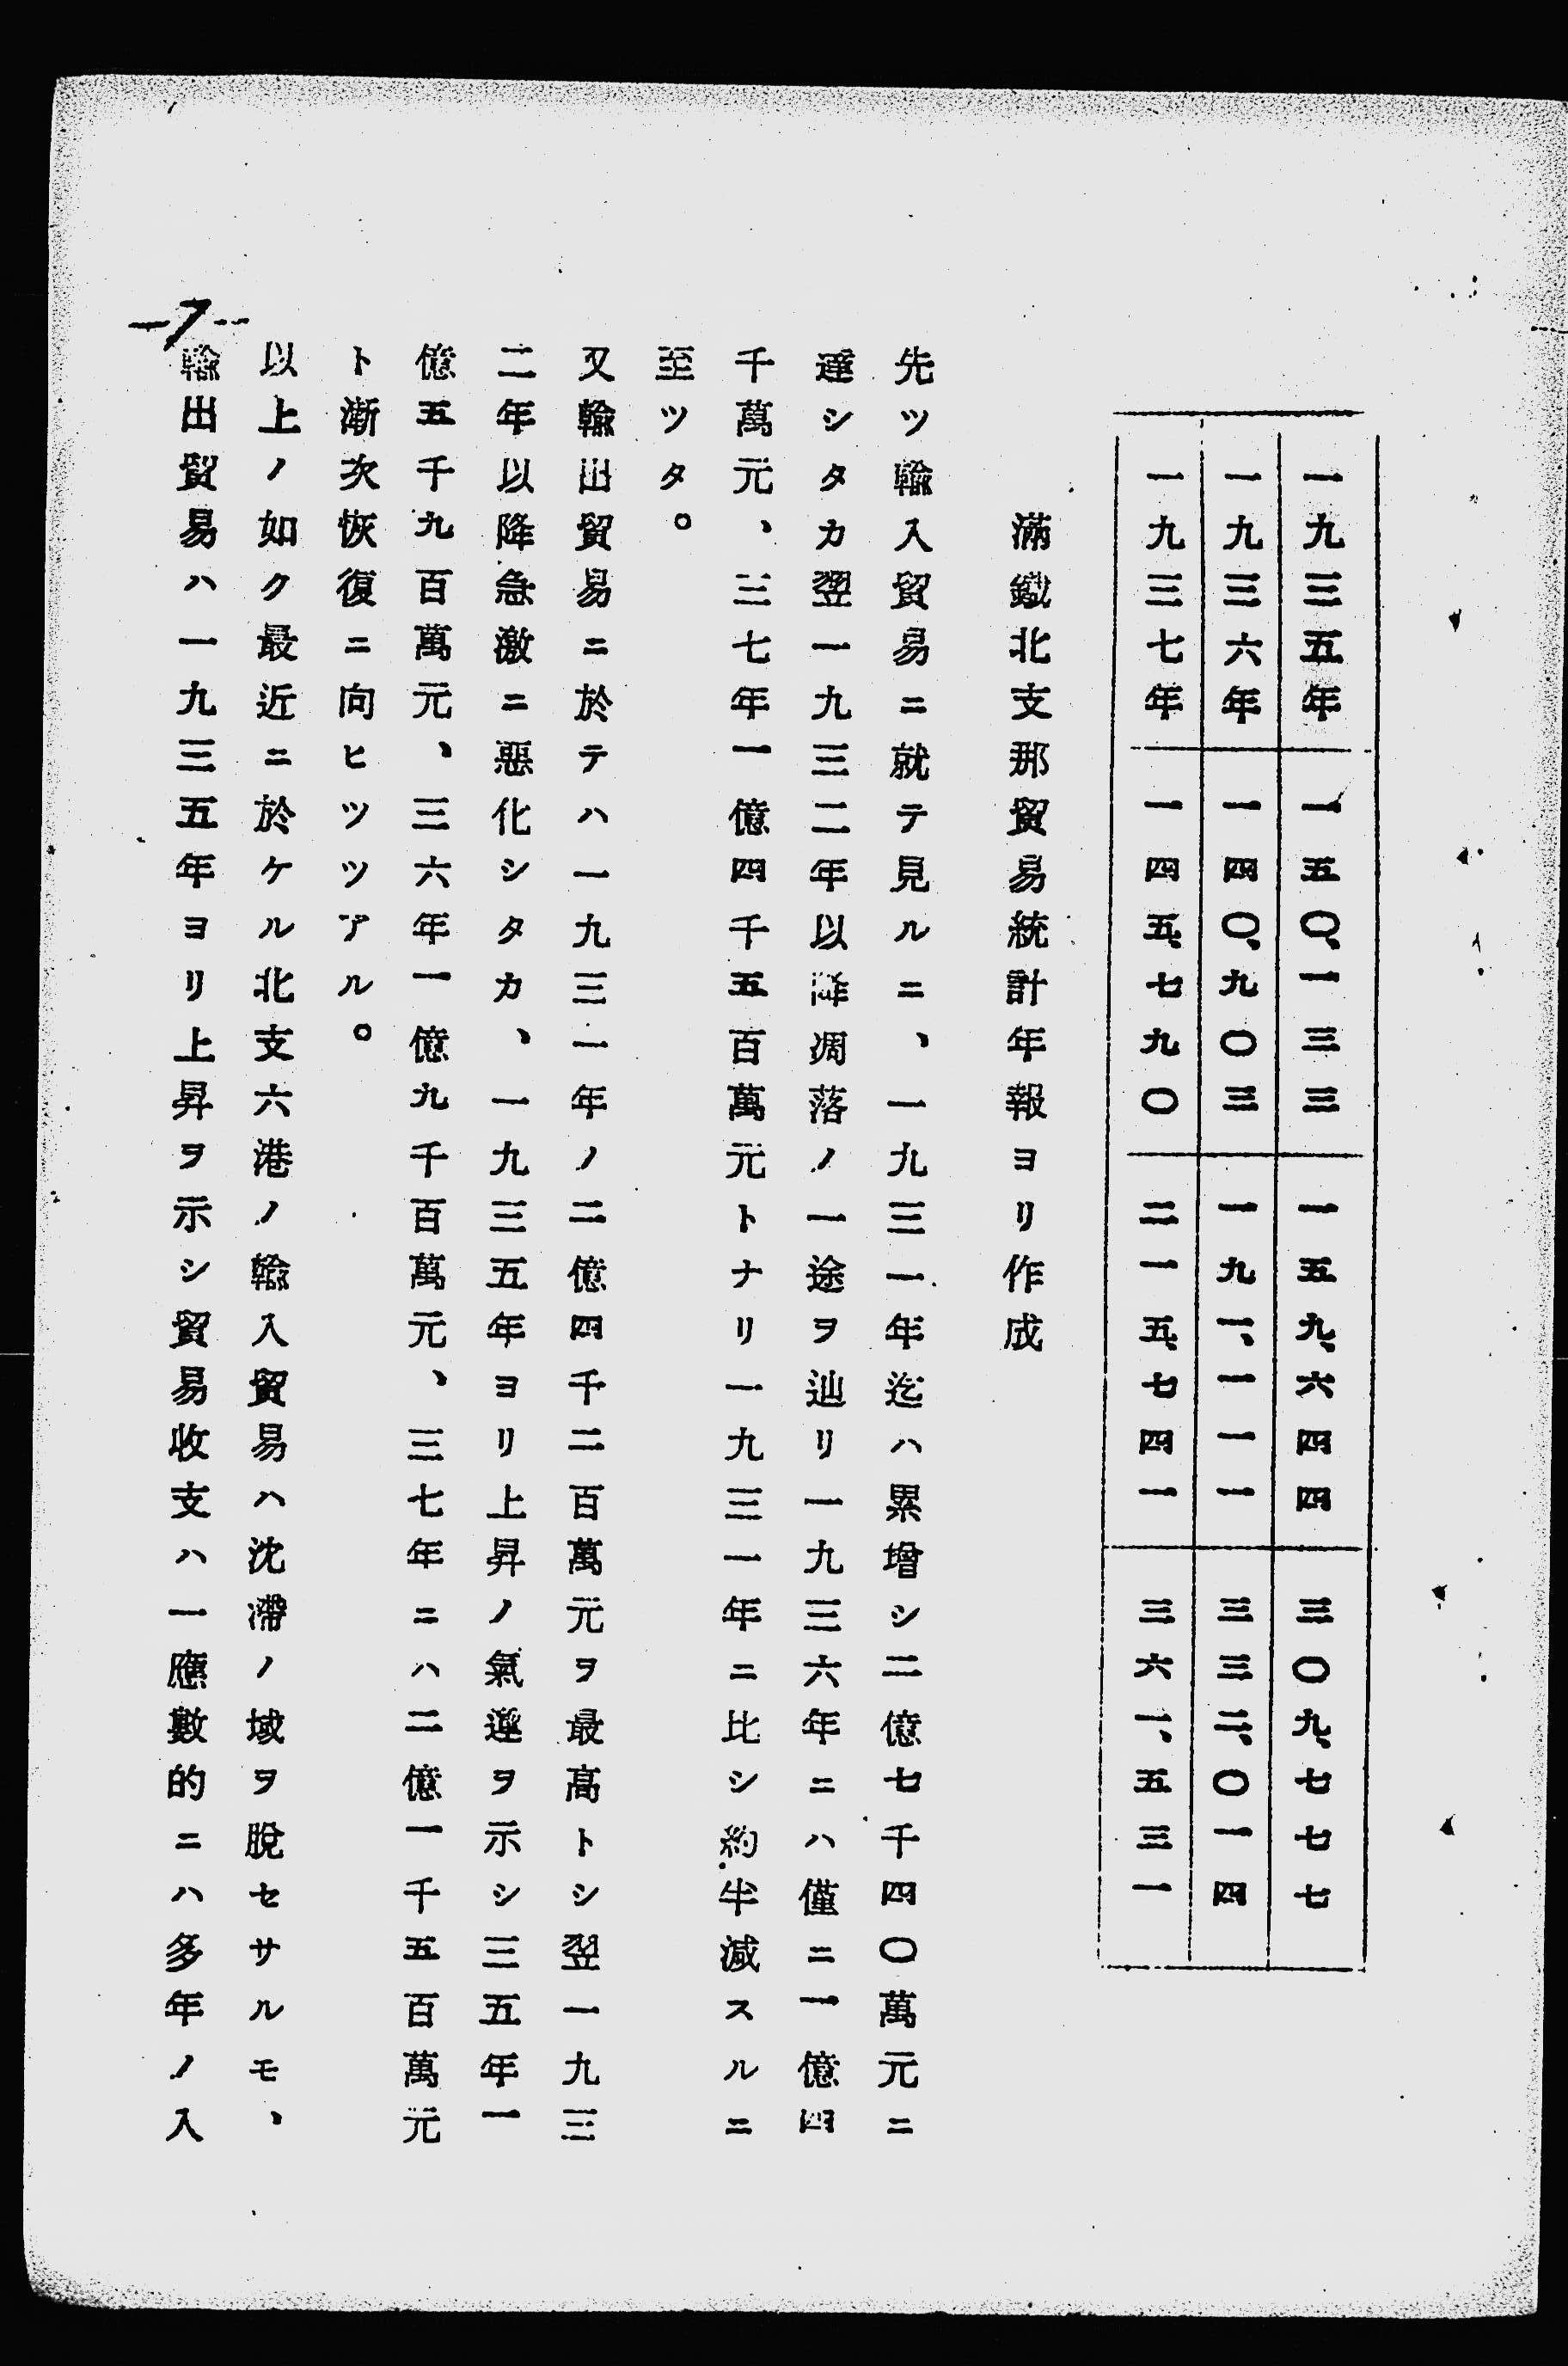 一九三五年 一五〇、一三三 一五九、六四四 三〇九、七七七
一九三六年 一四〇、九〇三 一九一、一一一 三三二、〇一四
一九三七年 一四五、七九〇 二一五、七四一 三六一、五三一
滿鐵北支那貿易統計年報ヨリ作成
先ツ輸入貿易ニ就テ見ルニ、一九三一年迄ハ累增シ二億七千四〇萬元ニ
達シタカ翌一九三二年以降凋落ノ一途ヲ辿リ一九三六年ニハ僅ニ一億四
千萬元、三七年一億四千五百萬元トナリ一九三一年ニ比シ約半減スルニ
至ツタ。
又輸出貿易ニ於テハ一九三一年ノ二億四千二百萬元ヲ最高トシ翌一九三
二年以降急激ニ惡化シタカ、一九三五年ヨリ上昇ノ氣運ヲ示シ三五年一
億五千九百萬元、三六年一億九千百萬元、三七年ニハ二億一千五百萬元
ト漸次恢復ニ向ヒツツアル。
以上ノ如ク最近ニ於ケル北支六港ノ輸入貿易ハ沈滯ノ域ヲ脫セサルモ、
輸出貿易ハ一九三五年ヨリ上昇ヲ示シ貿易收支ハ一應數的ニハ多年ノ入
—7—